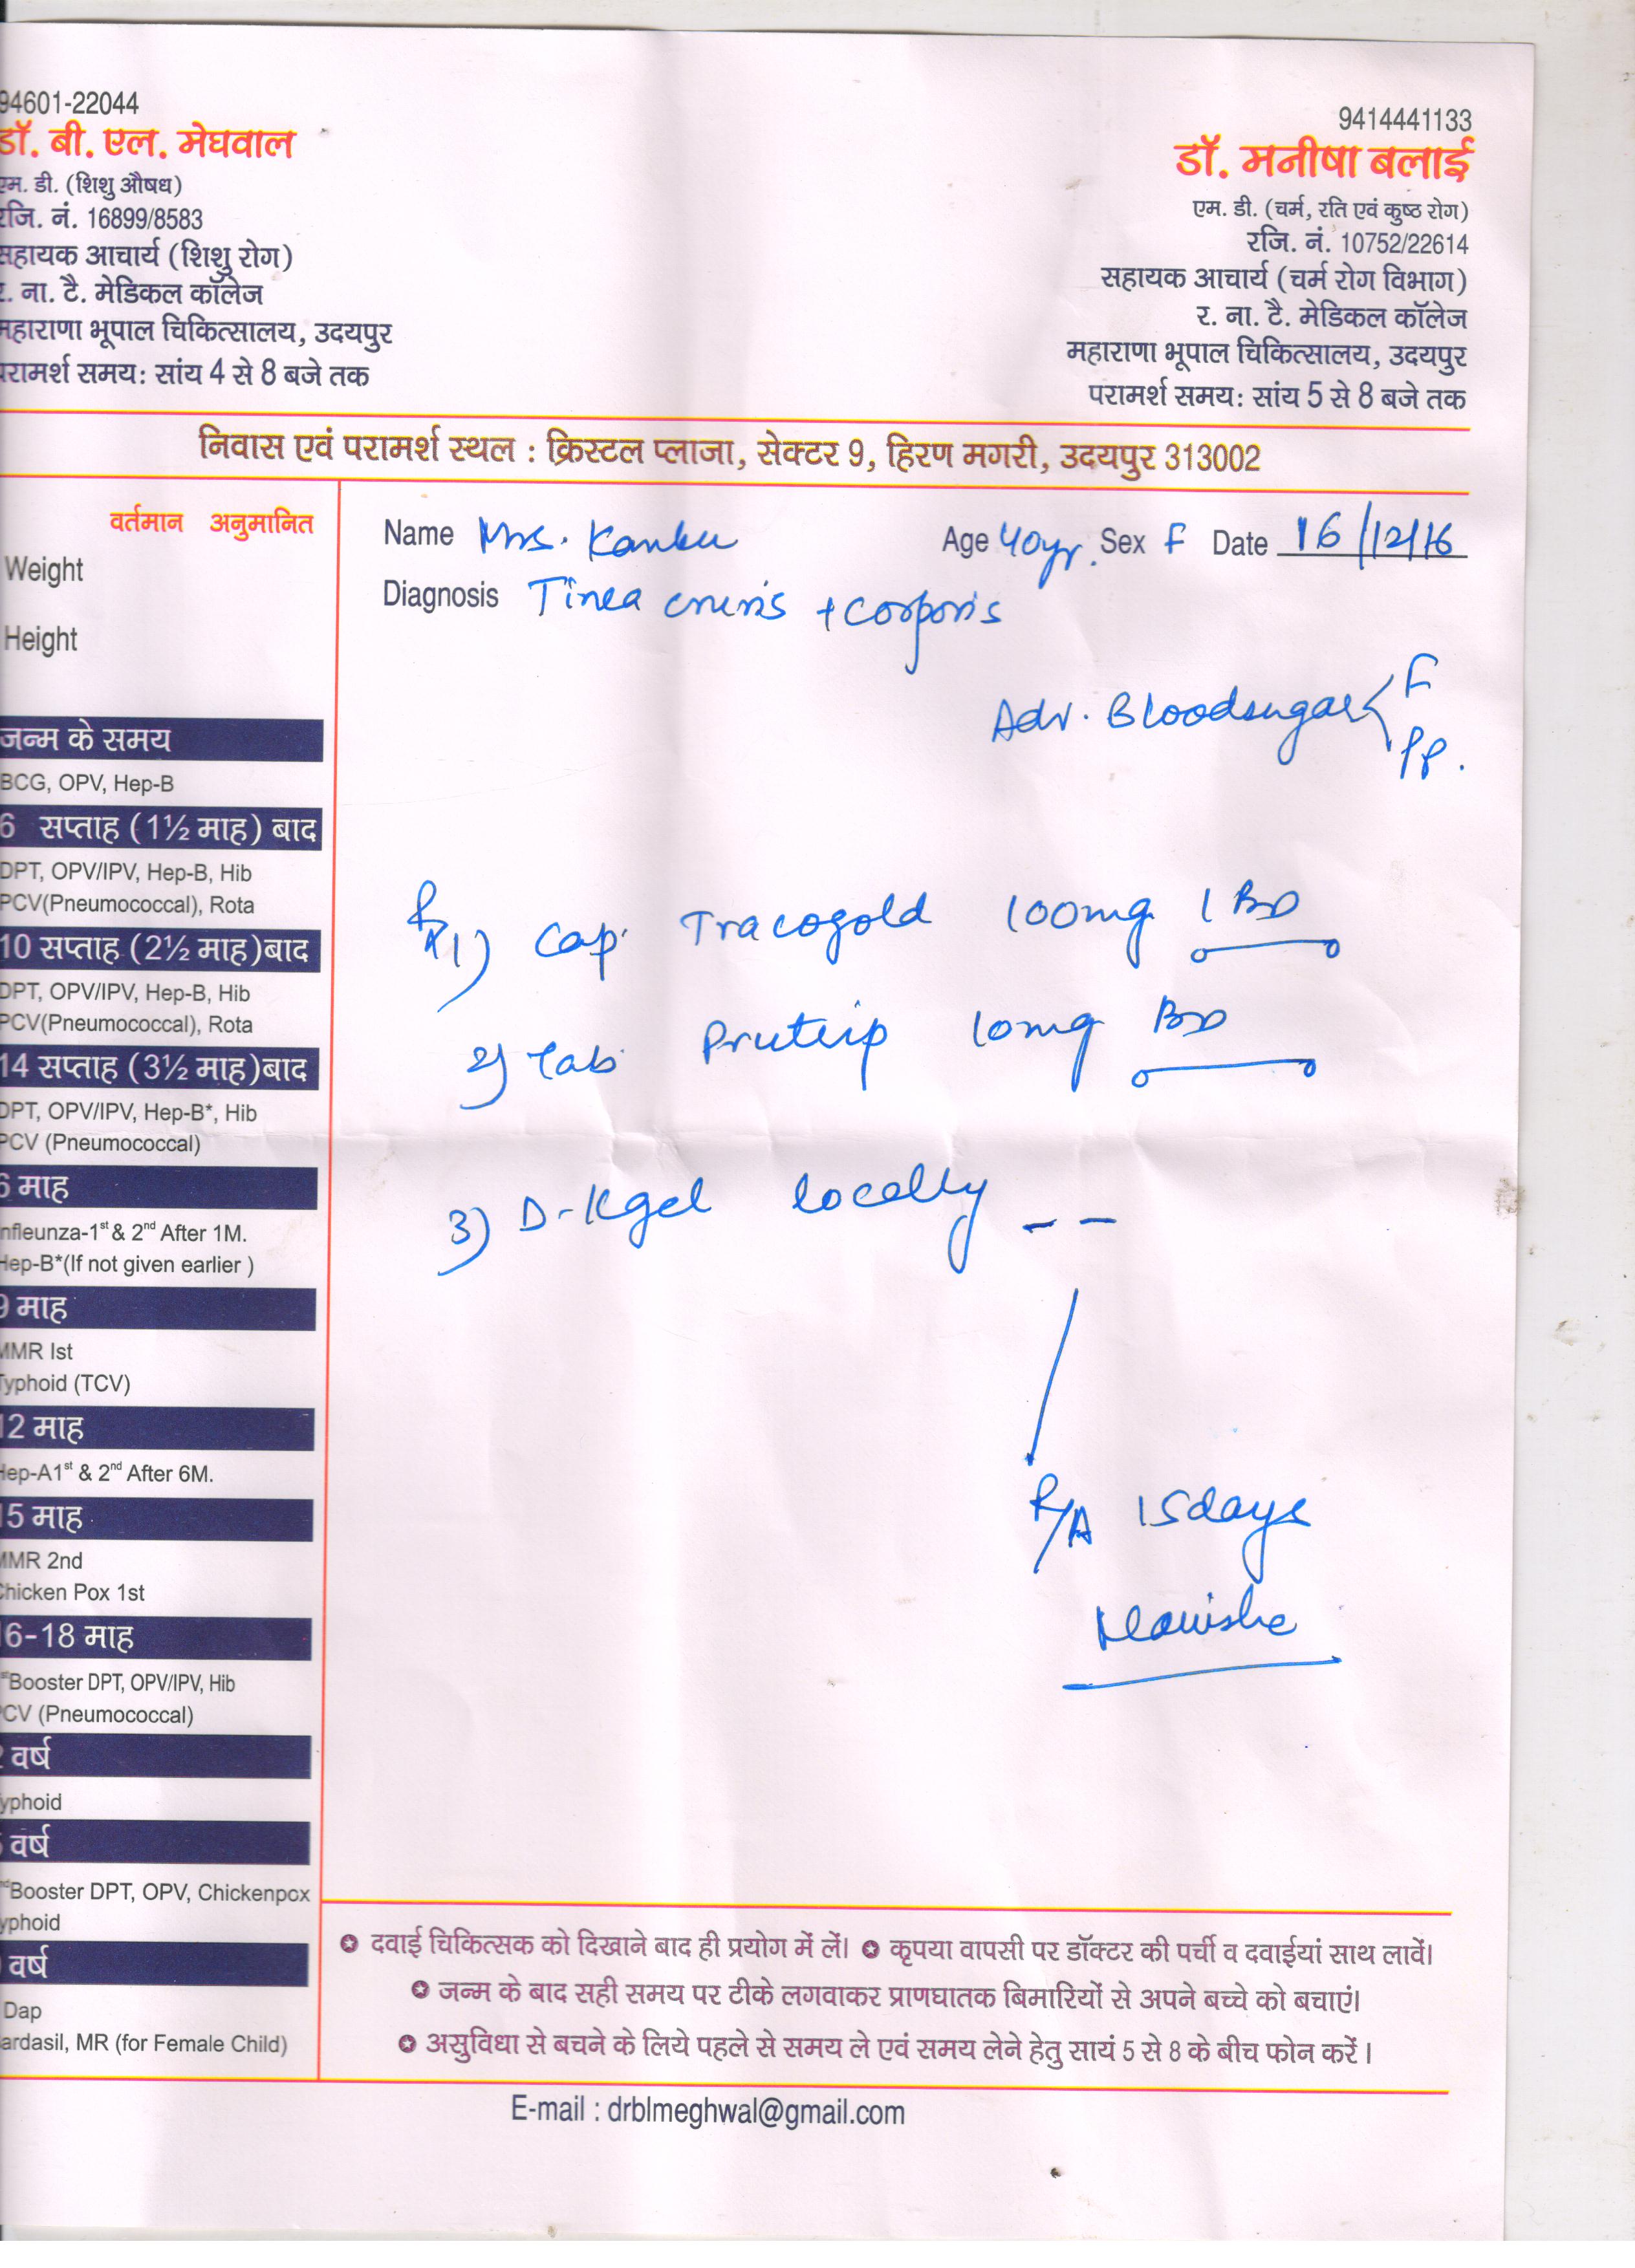 94601-22044
डॉ. बी. एल. मेघवाल
एम. डी. (शिशु औषध)
रजि. नं. 16899/8583
सहायक आचार्य (शिशु रोग)
र. ना. टै. मेडिकल कॉलेज
महाराणा भूपाल चिकित्सालय, उदयपुर
परामर्श समय: सांय 4 से 8 बजे तक
9414441133
डॉ. मनीषा बलाई
एम. डी. (चर्म, रति एवं कुष्ठ रोग)
रजि. नं. 10752/22614
सहायक आचार्य (चर्म रोग विभाग)
र. ना. टै. मेडिकल कॉलेज
महाराणा भूपाल चिकित्सालय, उदयपुर
परामर्श समय: सांय 5 से 8 बजे तक
निवास एवं परामर्श स्थल : क्रिस्टल प्लाजा, सेक्टर 9, हिरण मगरी, उदयपुर 313002
वर्तमान अनुमानित
Weight
Height
जन्म के समय
BCG, OPV, Hep-B
6 सप्ताह (1½ माह) बाद
DPT, OPV/IPV, Hep-B, Hib
PCV(Pneumococcal), Rota
10 सप्ताह (2½ माह)बाद
DPT, OPV/IPV, Hep-B, Hib
PCV(Pneumococcal), Rota
14 सप्ताह (3½ माह)बाद
DPT, OPV/IPV, Hep-B*, Hib
PCV (Pneumococcal)
6 माह
nfleunza-1st & 2nd After 1M.
Hep-B*(If not given earlier )
9 माह
MMR Ist
Typhoid (TCV)
12 माह
Hep-A1st & 2nd After 6M.
15 माह
MMR 2nd
Chicken Pox 1st
16-18 माह
Booster DPT, OPV/IPV, Hib
PCV (Pneumococcal)
वर्ष
yphoid
वर्ष
Booster DPT, OPV, Chickenpox
yphoid
वर्ष
Dap
ardasil, MR (for Female Child)
Name Mrs. Kanku Age 40yr. Sex F Date 16/12/16
Diagnosis Tinea cruris + corporis
Adv. Bloodsugar F
PP.
Rx 1) Cap. Tracogold 100mg 1 BD
2) Tab. Pruteip 10mg BD
3) D-Kgel locally --
R/A 15days
Manisha
दवाई चिकित्सक को दिखाने बाद ही प्रयोग में लें। कृपया वापसी पर डॉक्टर की पर्ची व दवाईयां साथ लावें।
जन्म के बाद सही समय पर टीके लगवाकर प्राणघातक बिमारियों से अपने बच्चे को बचाएं।
असुविधा से बचने के लिये पहले से समय ले एवं समय लेने हेतु सायं 5 से 8 के बीच फोन करें ।
E-mail : drblmeghwal@gmail.com